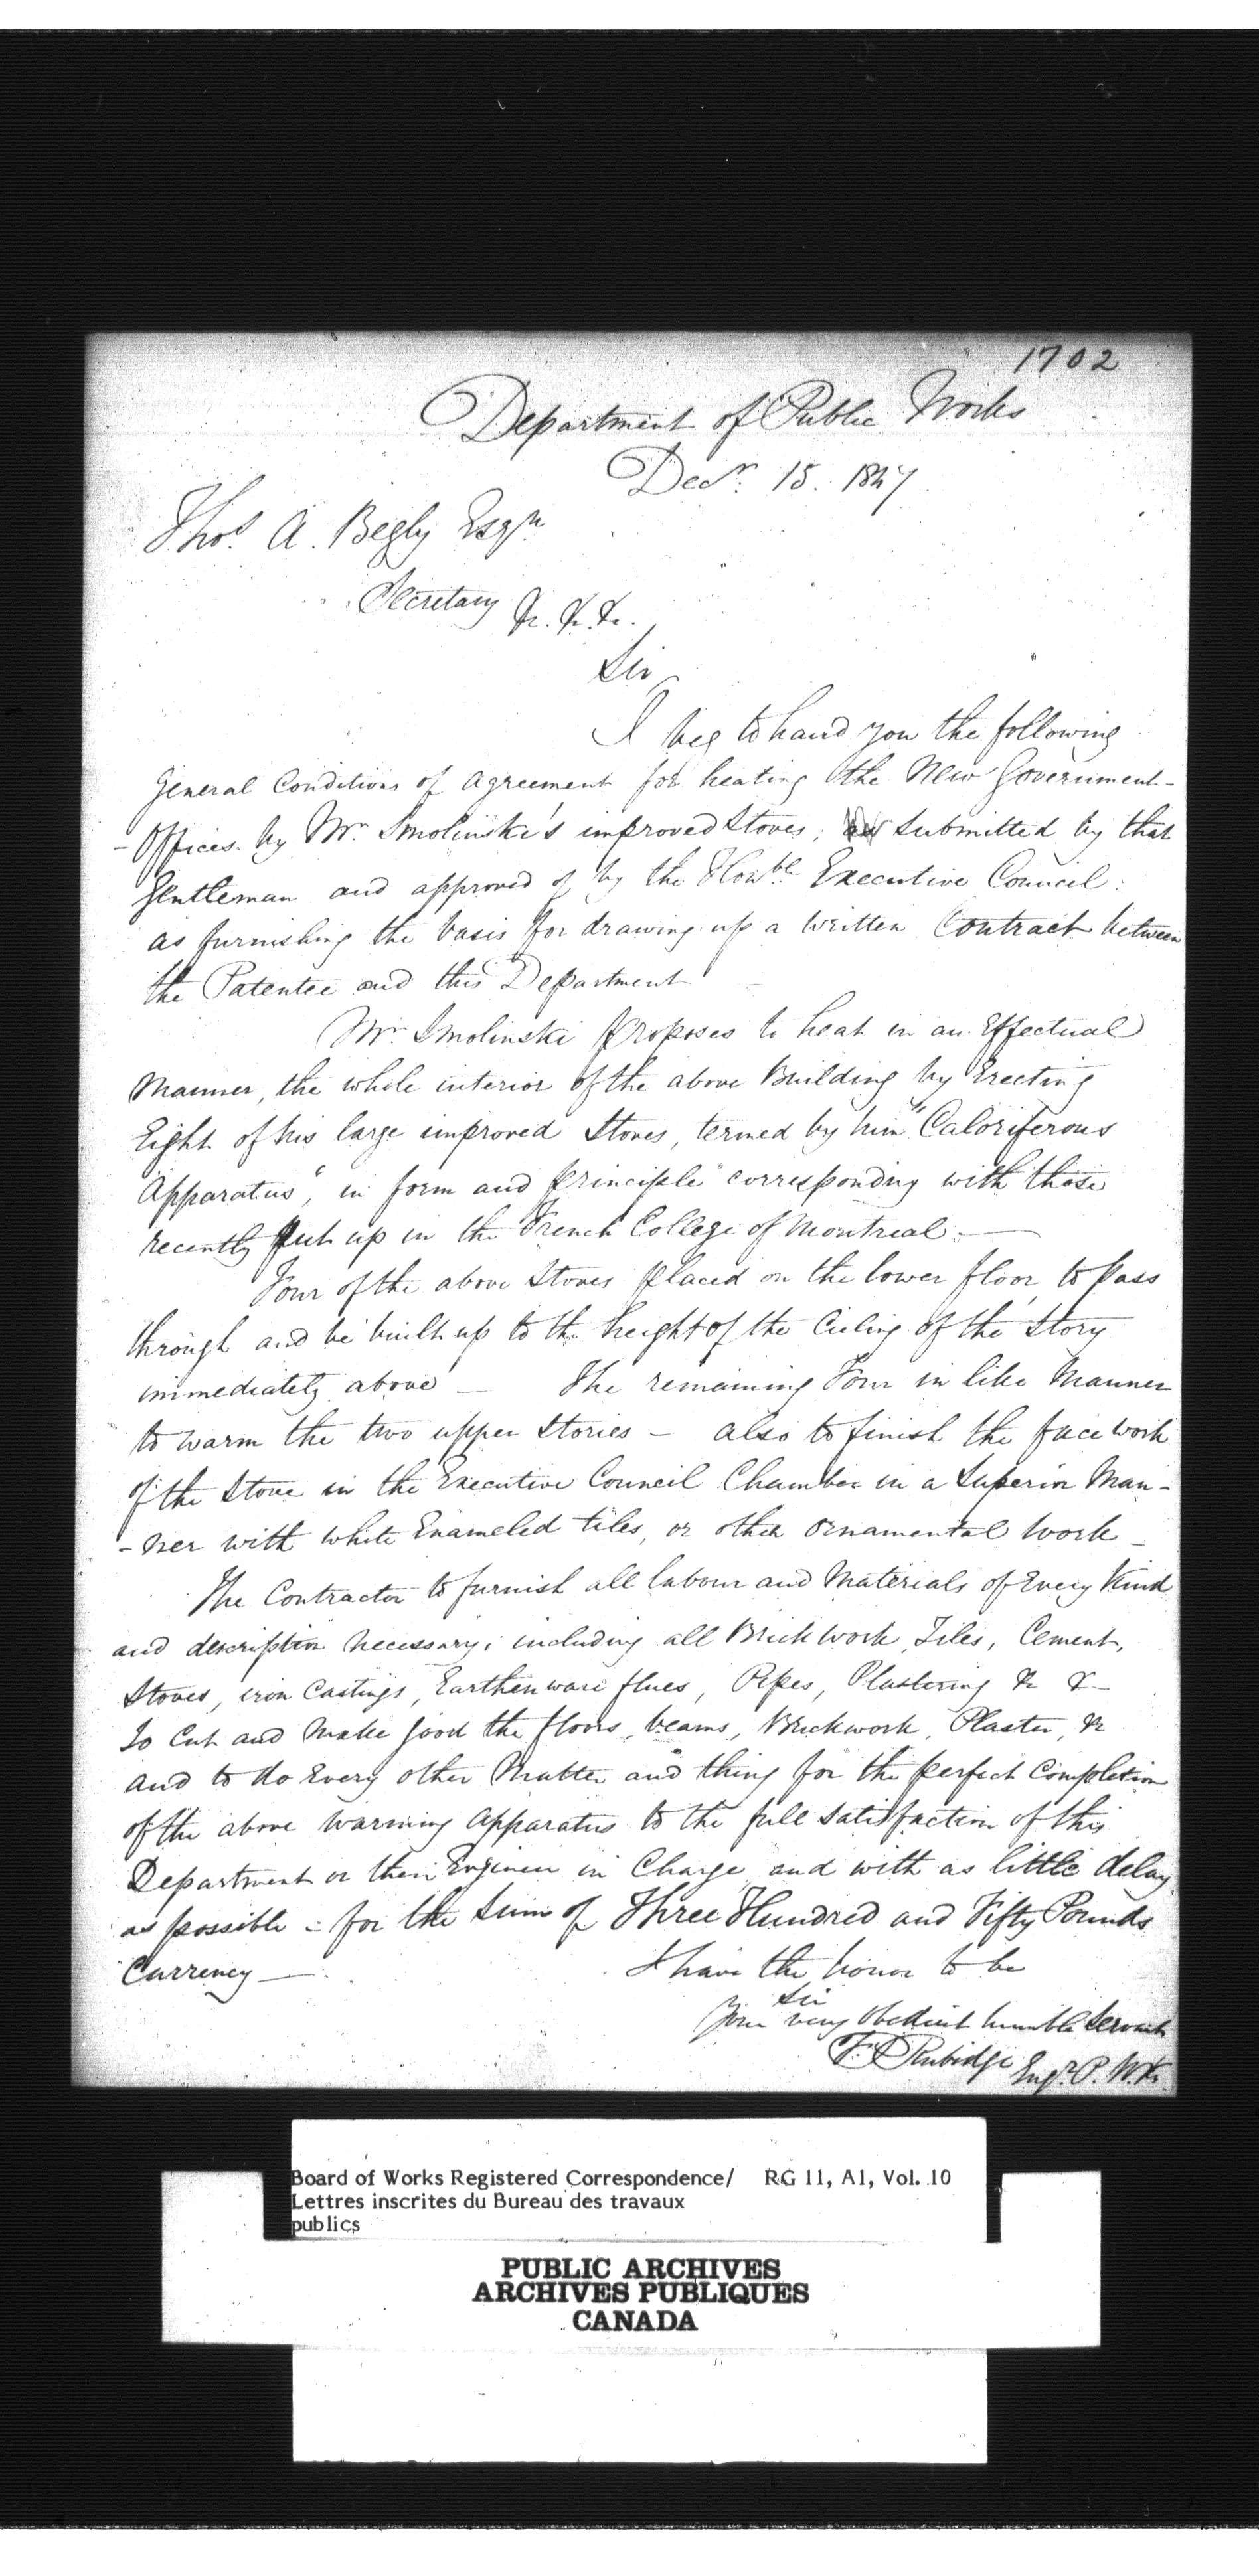 1702
Department of Public Works
Decr. 15. 1847
Thos. A. Begly Esqr
Secretary &c. &c. &c.
Sir
I beg to hand you the following
General Conditions of Agreement for heating the New Government-
-Offices by Mr Smolinski's improved Stoves; submitted by that
Gentleman and approved of by the Honble Executive Council:
as furnishing the basis for drawing up a written Contract between
the Patentee and this Department
Mr. Smolinski proposes to heat in an Effectual
Manner, the whole interior of the above Building by Erecting
Eight of his large improved Stoves, termed by him "Caloriferous
Apparatus", in form and principle corresponding with those
recently put up in the French College of Montreal.—
Four of the above Stoves placed on the lower floor, to pass
through and be built up to the height of the Cieling of the Story
immediately above — The remaining Four in like Manner
to warm the two upper Stories — also to finish the face work
of the Stove in the Executive Council Chamber in a Superior Man-
-ner with white Enameled tiles, or other ornamental work —
The Contractor to furnish all labour and Materials of Every Kind
and description necessary; including all Brickwork, Tiles, Cement,
Stoves, iron Castings, Earthenware flues, Pipes, Plastering &c &c
To Cut and Make good the floors, beams, Brickwork, Plaster, &c
and to do Every other Matter and thing for the perfect Completion
of the above warming Apparatus to the full satisfaction of this
Department or their Engineer in Charge and with as little delay
as possible - for the Sum of Three Hundred and Fifty Pounds
Currency —
I have the honor to be
Sir
Your very obedient humble Servant
F. P. Rubidge Engr. P. Wks.
Board of Works Registered Correspondence/ RG 11, A1, Vol. 10
Lettres inscrites du Bureau des travaux
publics
PUBLIC ARCHIVES
ARCHIVES PUBLIQUES
CANADA